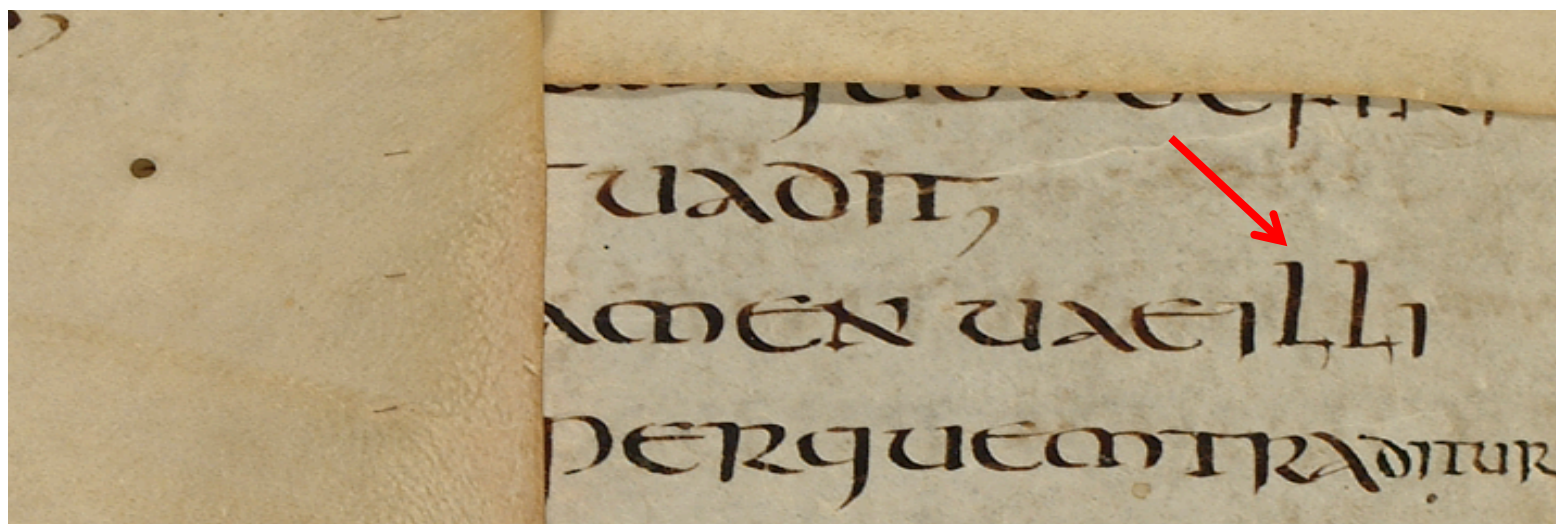 UADIT,
AMEN UAEILLI
PERQUEMTRADITUR